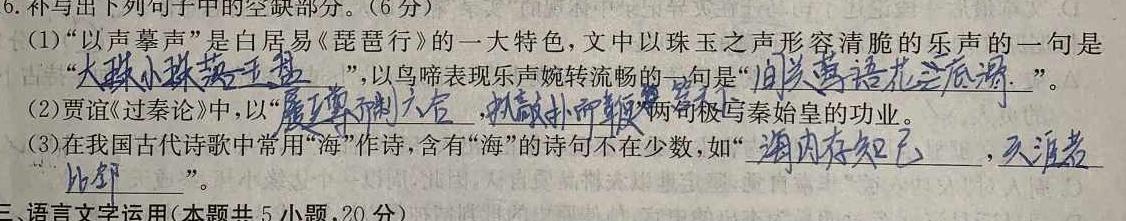 6.补写出下列句子中的空缺部分。(6分)
(1)“以声摹声”是白居易《琵琶行》的一大特色,文中以珠玉之声形容清脆的乐声的一句是
“大珠小珠落玉盘”,以鸟啼表现乐声婉转流畅的一句是“间关莺语花底滑”。
(2)贾谊《过秦论》中,以“履至尊而制六合,执敲扑而鞭笞天下”两句极写秦始皇的功业。
(3)在我国古代诗歌中常用“海”作诗,含有“海”的诗句不在少数,如“海内存知己,天涯若
比邻”。
三、语言文字运用(本题共5小题,20分)